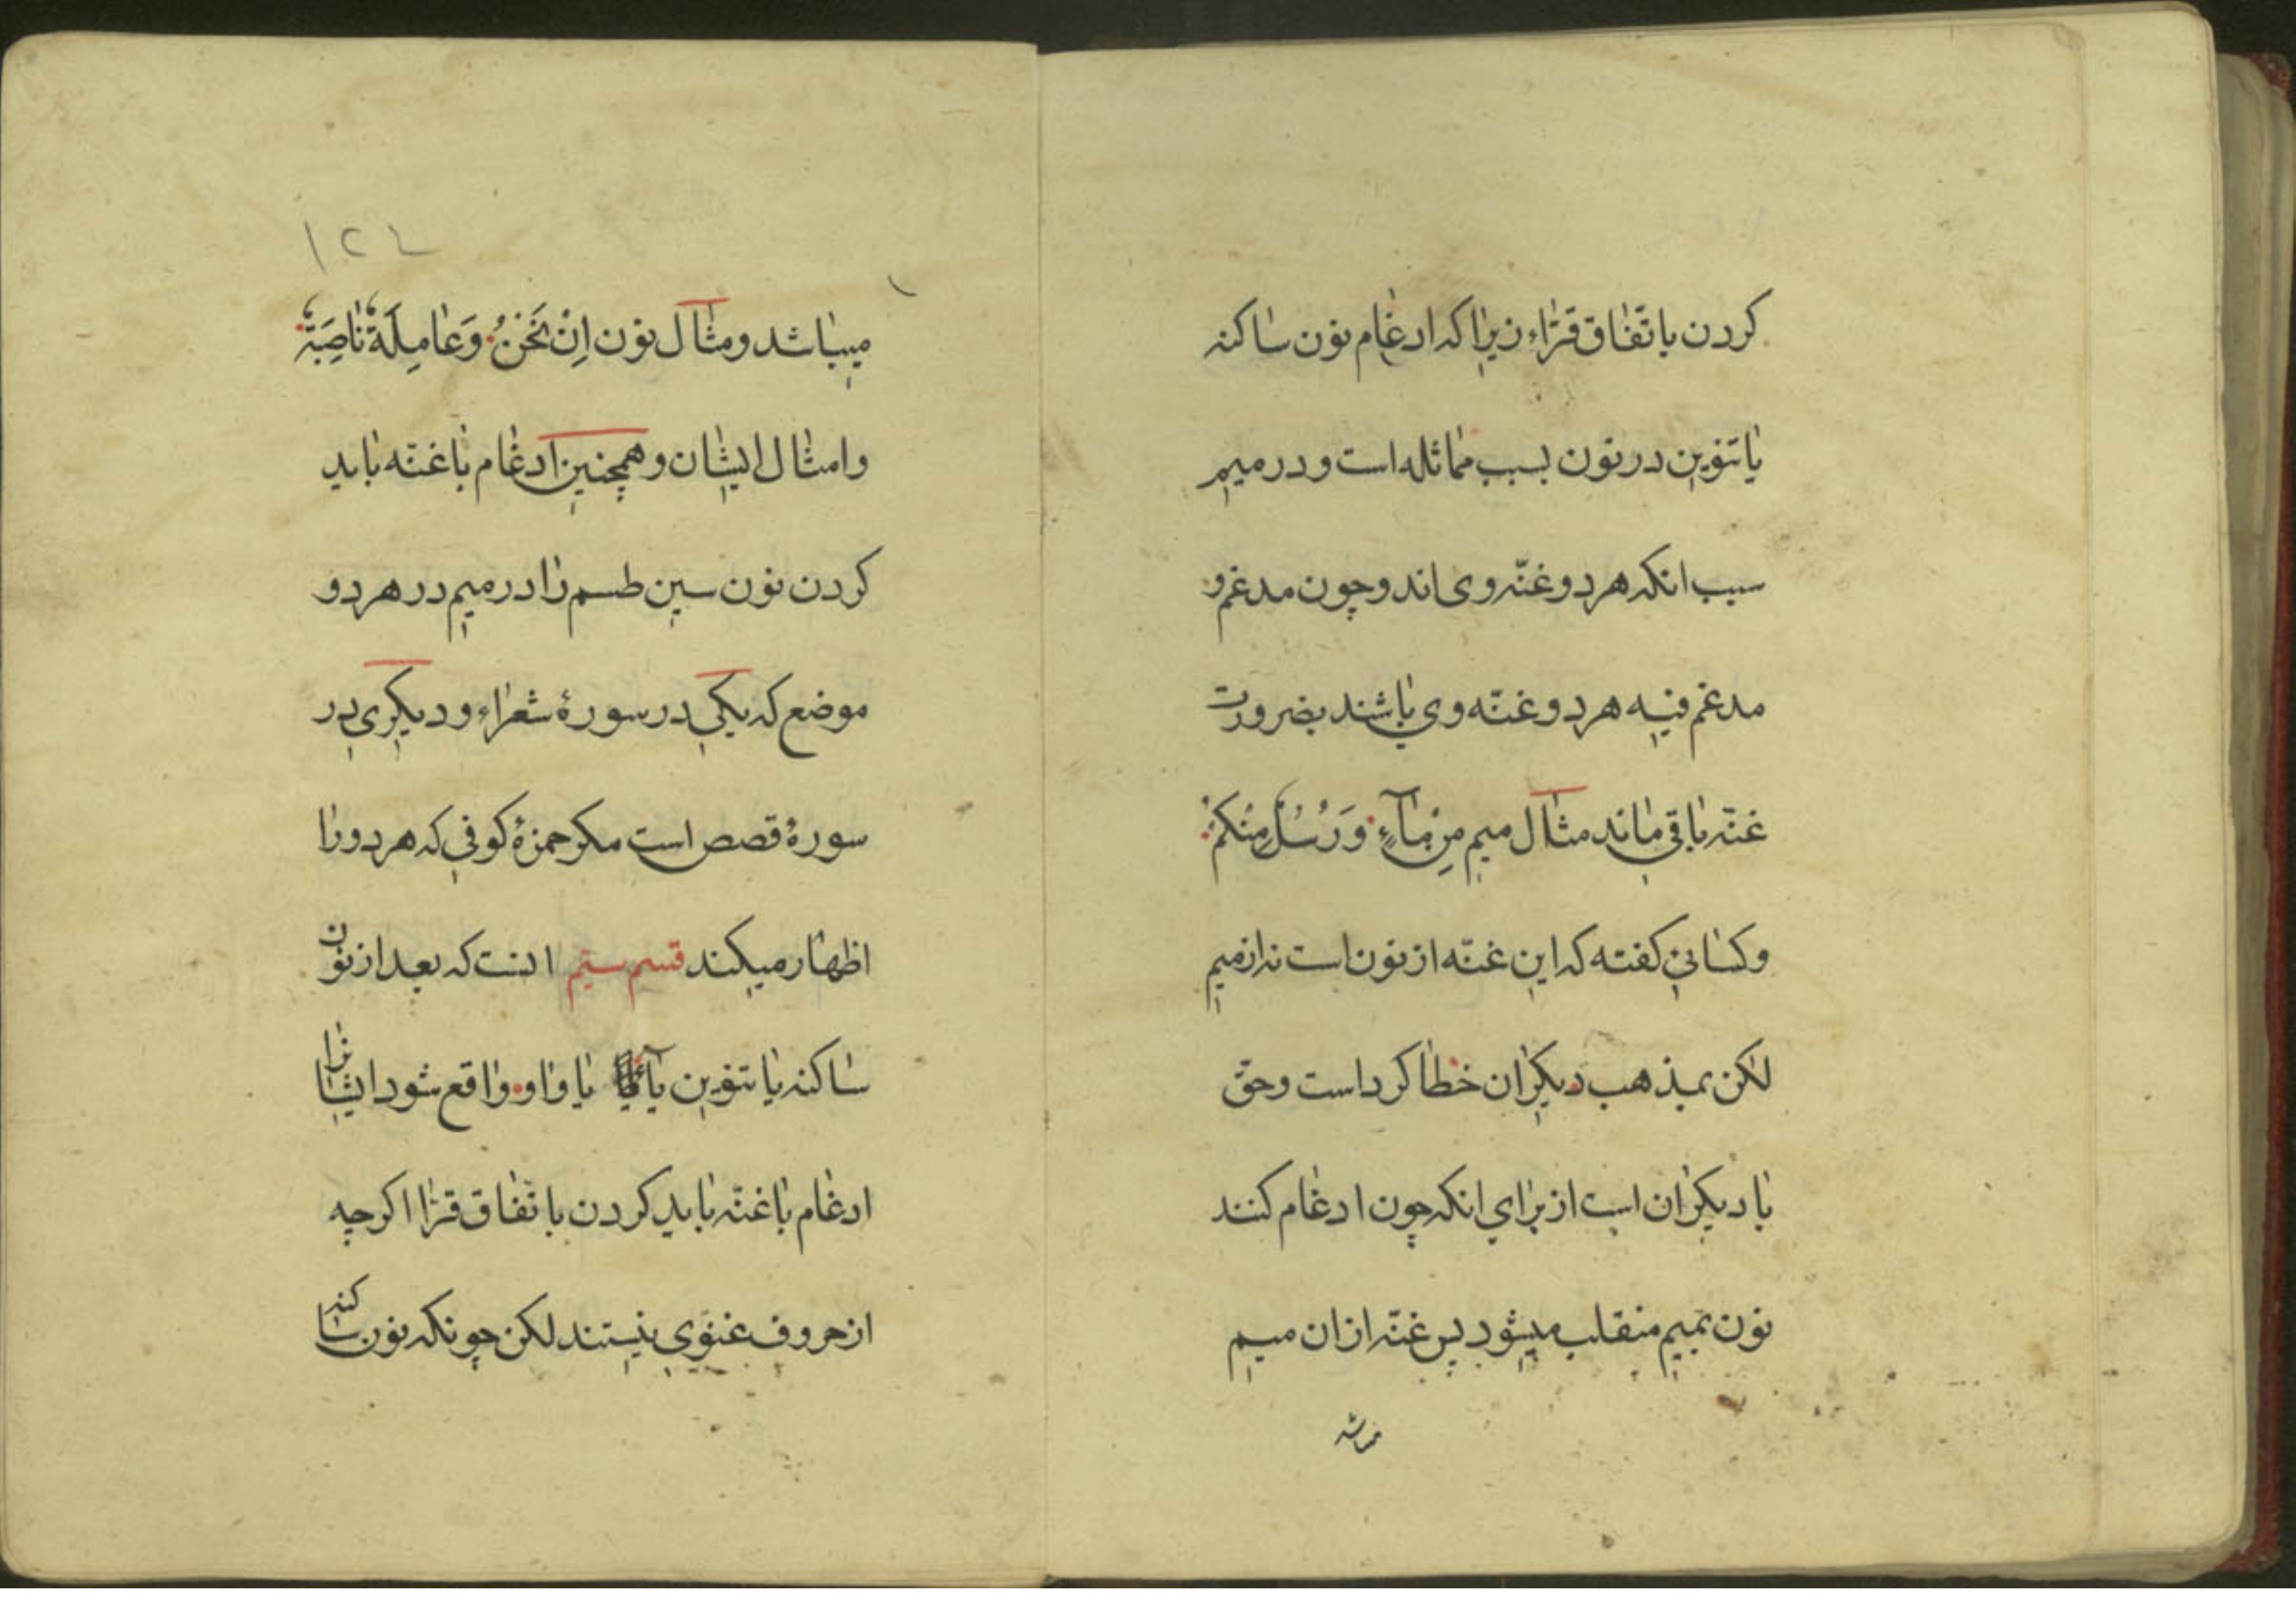 کردن باتّفاق قرّاء زیرا که ادغام نون ساکنه
یا تنوین در نون بسبب مماثله است و در میم
سبب انکه هر دو غنّه وی اند و چون مدغم و
مدغم فیه هر دو غنّه وی باشند بضرورت
غنّه باقی ماند مثال میم مِنْ مٰآءٍ وَرُسُلٌ مِنْکُمْ
و کسائی کفته که این غنّه از نون است نه از میم
لکن بمذهب دیکران خطا کرد است و حقّ
با دیکران است از برای انکه چون ادغام کنند
نون بمیم منقلب میشود پس غنّه از ان میم
میباشد
۱۲۴
میباشد و مثال نون اِنْ نَحْنُ وَعٰامِلَةٌ نٰاصِبَةٌ
و امثال ایشان و همچنین ادغام با غنّه باید
کردن نون سین طسم را در میم در هر دو
موضع که یکی در سورهٔ شعراء و دیکری در
سورهٔ قصص است مکر حمزهٔ کوفی که هر دو را
اظهار میکند قسم سیّم انست که بعد از نون
ساکنه یا تنوین یآ یا واو واقع شود ایشانرا
ادغام با غنّه باید کردن باتّفاق قرّا اکر چه
از حروف غنوی نیستند لکن چونکه نون ساکنه